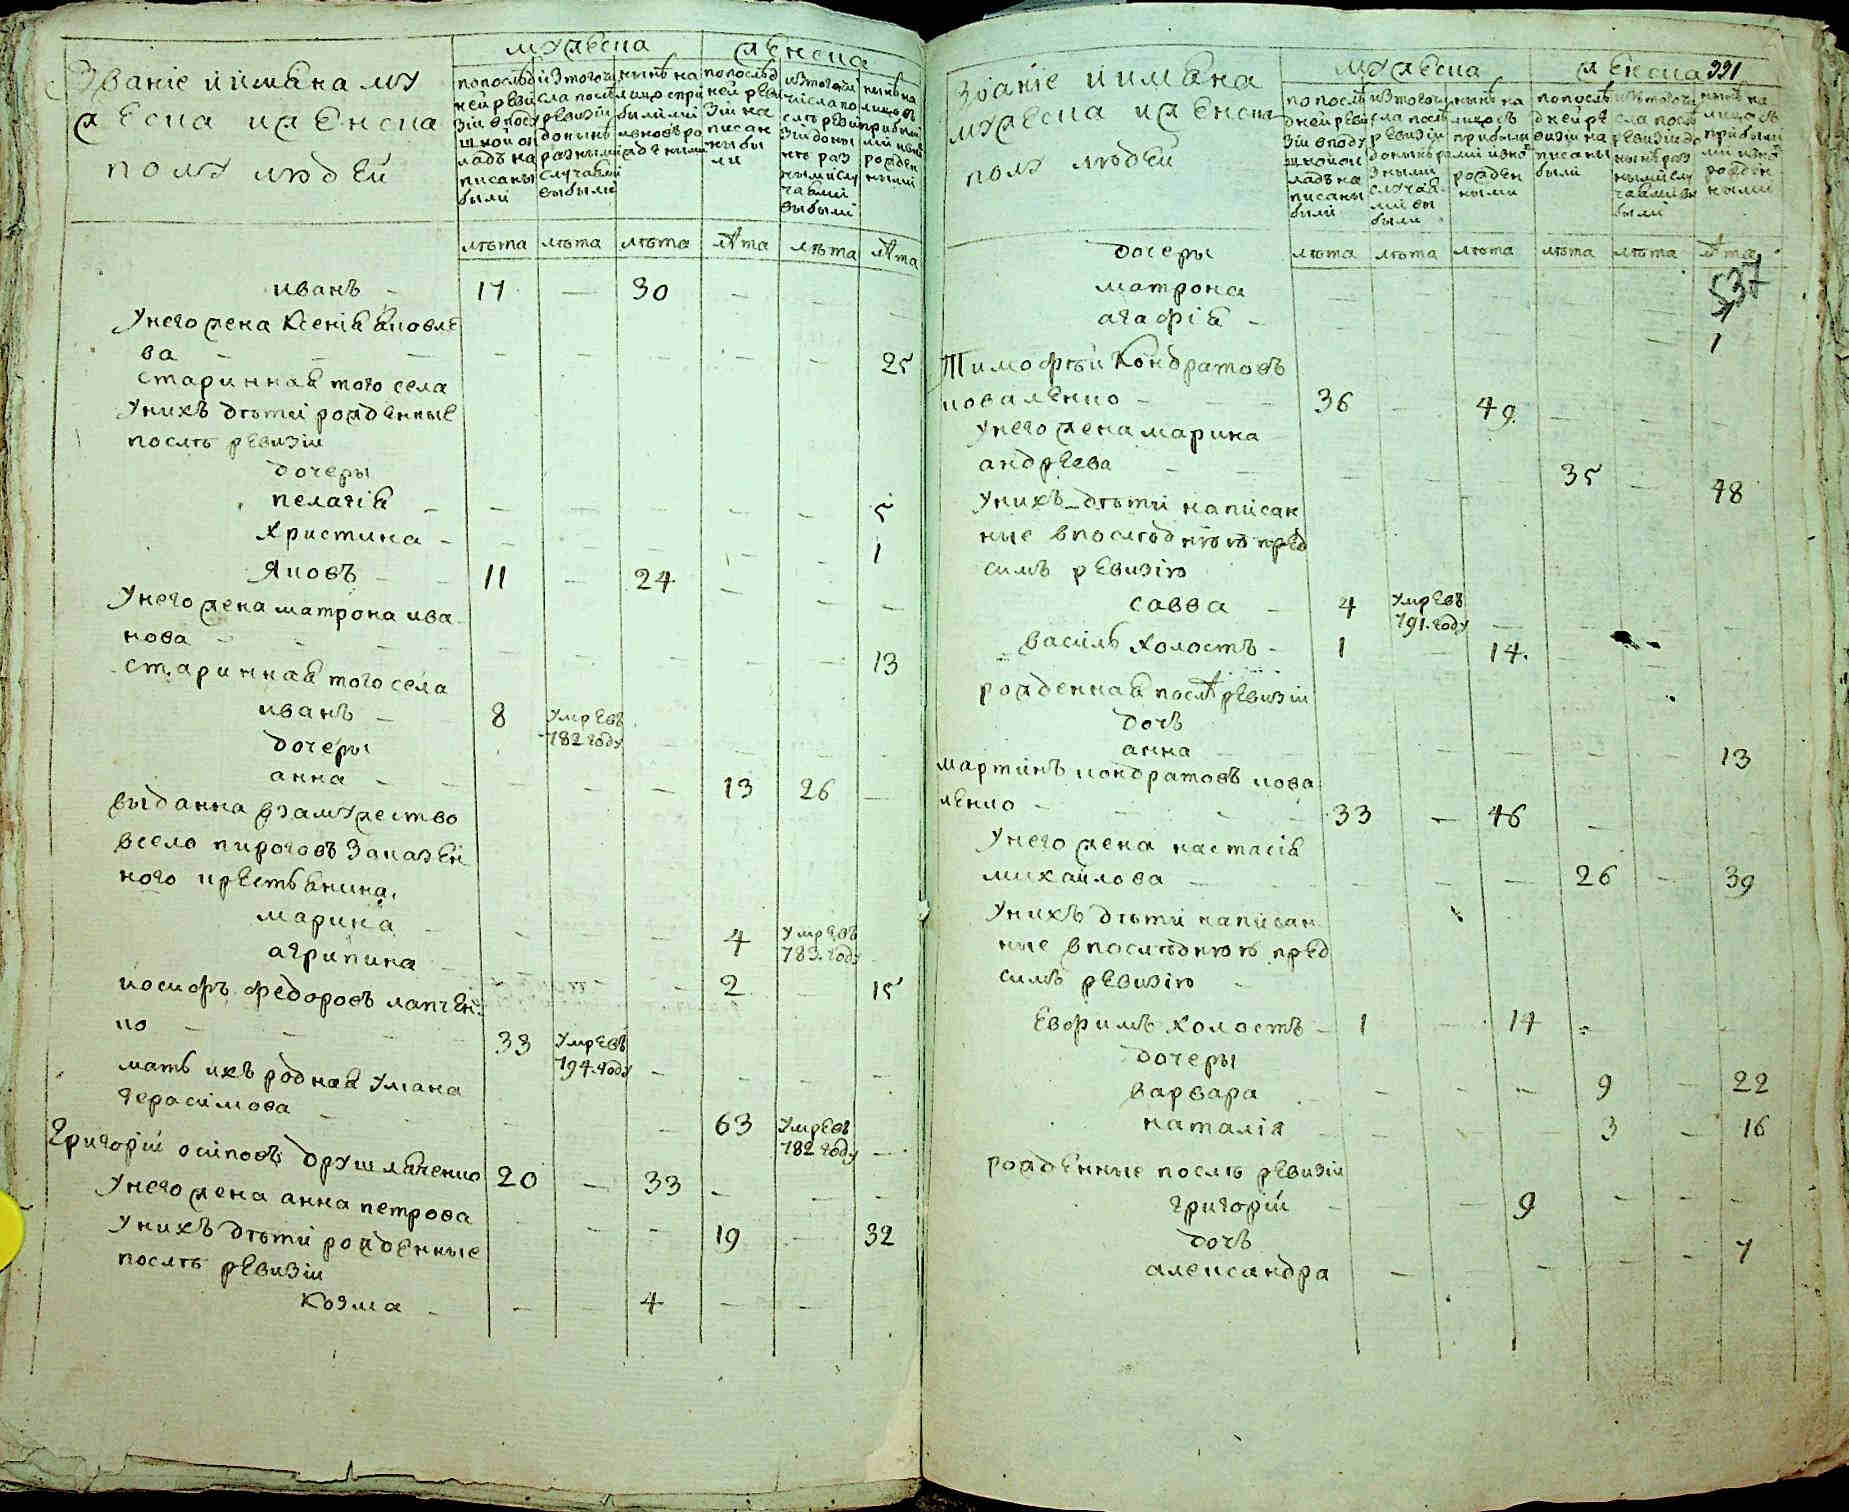 Званіе и имяна му
жеска и женска
полу людей
мужеска
женска
по послѣд
ней реви
зіи в поду
шной ок
ладъ на
писаны
были
изтого чи
сла послѣ
ревизіи
донынѣ
разными
случаями
выбыли
нынѣ на
лицо с при
былыми
и вновь ро
жденными
по послѣд
ней реви
зіи на
писан
ны бы
ли
изтого
числа по
слѣ ревизіи
зіи доны
нѣ раз
ными слу
чаями
выбыли
нынѣ на
лицо съ
прибылы
ми и вновь
рожден
ными
лѣта лѣта лѣта лѣта лѣта лѣта
иванъ - 17 — 30 — — —
Унего жена Ксенія яковле
ва — — — — — — — 25
старинная того села
Унихъ дѣти рожденные
послѣ ревизіи
дочеры
пелагія — — — — — — 5
Христина — — — — — — 1
Яковъ — 11 — 24 — — —
Унего жена матрона ива
нова — — — — — — 13
старинная того села
иванъ — 8 умревъ
782 году — — — —
дочеры
анна — — — — 13 26 —
выданна взамужество
всело пироговъ заказен
ного крестьянина.
марина — — — — 4 умревъ
783. году
агрипина — — — — 2 — 15
иосифъ федоровъ лапчен
ко — 33 умревъ
794. году — — — —
мать ихъ родная уляна
герасимова — — — — 63 умревъ
782 году —
Григорій осиповъ друшляченко 20 — 33 — — —
Унего жена анна петрова — — — 19 — 32
Унихъ дѣти рожденные
послѣ ревизіи
Козма — — — 4 — —
331
537
Званіе и имяна
мужеска и женска
полу людей
мужеска
женска
по послѣ
дней реви
зіи в поду
шной ок
ладъ на
писаны
были
изтого чи
сла послѣ
ревизіи
донынѣ ра
зными
случая
ми вы
были
нынѣ на
лицо съ
прибылы
ми и вновь
рожден
ными
по послѣ
дней ре
визіи на
писаны
были
изтого чи
сла послѣ
ревизіи до
нынѣ раз
ными слу
чаями вы
были
нынѣ на
лицо съ
прибылы
ми и вно
рожден
ными
лѣта лѣта лѣта лѣта лѣта лѣта
дочеры
матрона — — — — —
агафія — — — — — — 1
Тимофѣй Кондратовъ
коваленко — 36 — 49. — — —
Унего жена марина
андреева — — — — 35 — 48
Унихъ дѣти написан
ные в послѣднюю пред
симъ ревизію
савва — 4 умревъ
791. году — — — —
василь холостъ — 1 — 14. — — —
рожденная послѣ ревизіи
дочь
анна — — — — — — 13
мартинъ кондратовъ кова
ленко — 33 — 46 — — —
Унего жена настасія
михайлова — — — — 26 — 39
Унихъ дѣти написан
ные в послѣднюю пред
симъ ревизію
Евфимъ холостъ — 1 — 14 — — —
дочеры
варвара — — — 9 — 22
наталія — — — — 3 — 16
рожденные послѣ ревизіи
григорій — — — 9 — — —
дочь
александра — — — — — 7